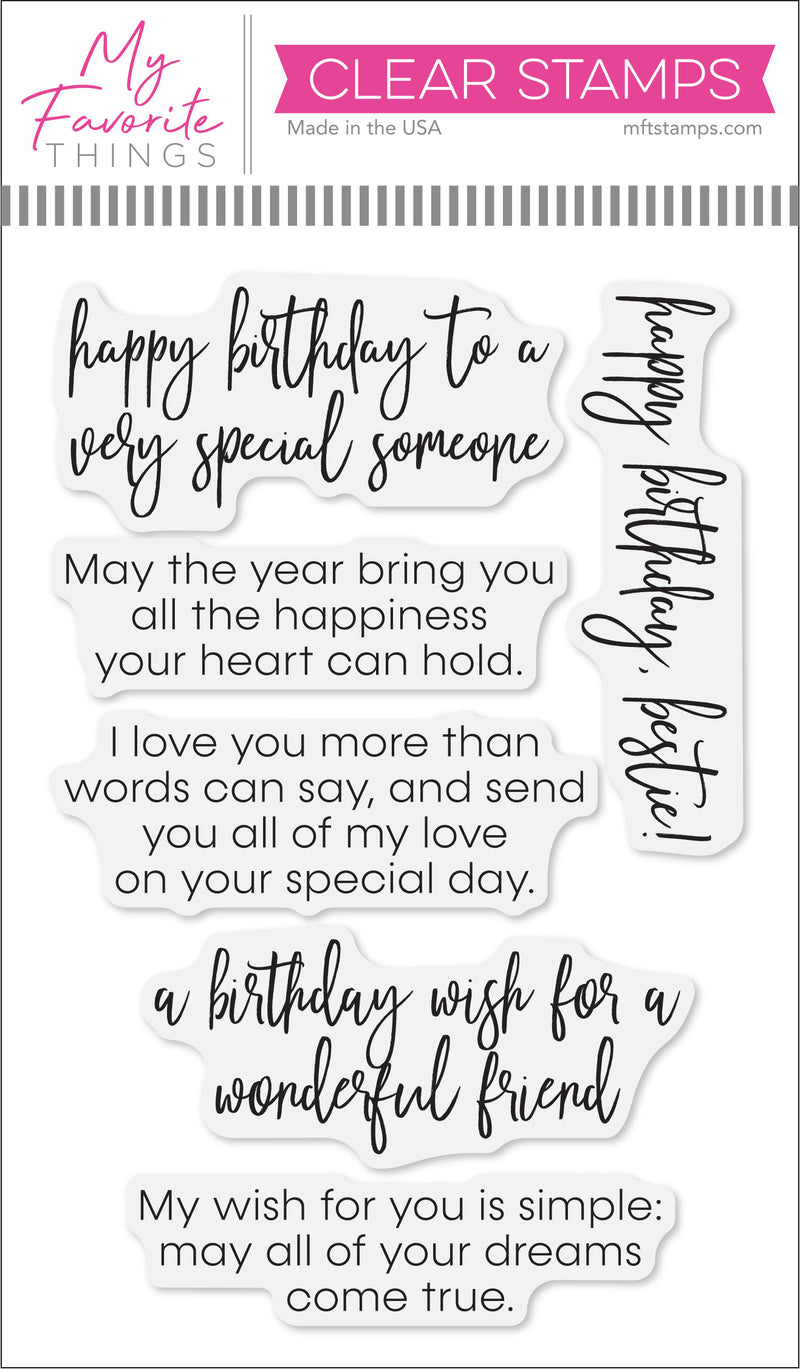 My
Favorite
THINGS
CLEAR STAMPS
Made in the USA
mftstamps.com
happy birthday to a
very special someone
happy birthday, bestie!
May the year bring you
all the happiness
your heart can hold.
I love you more than
words can say, and send
you all of my love
on your special day.
a birthday wish for a
wonderful friend
My wish for you is simple:
may all of your dreams
come true.